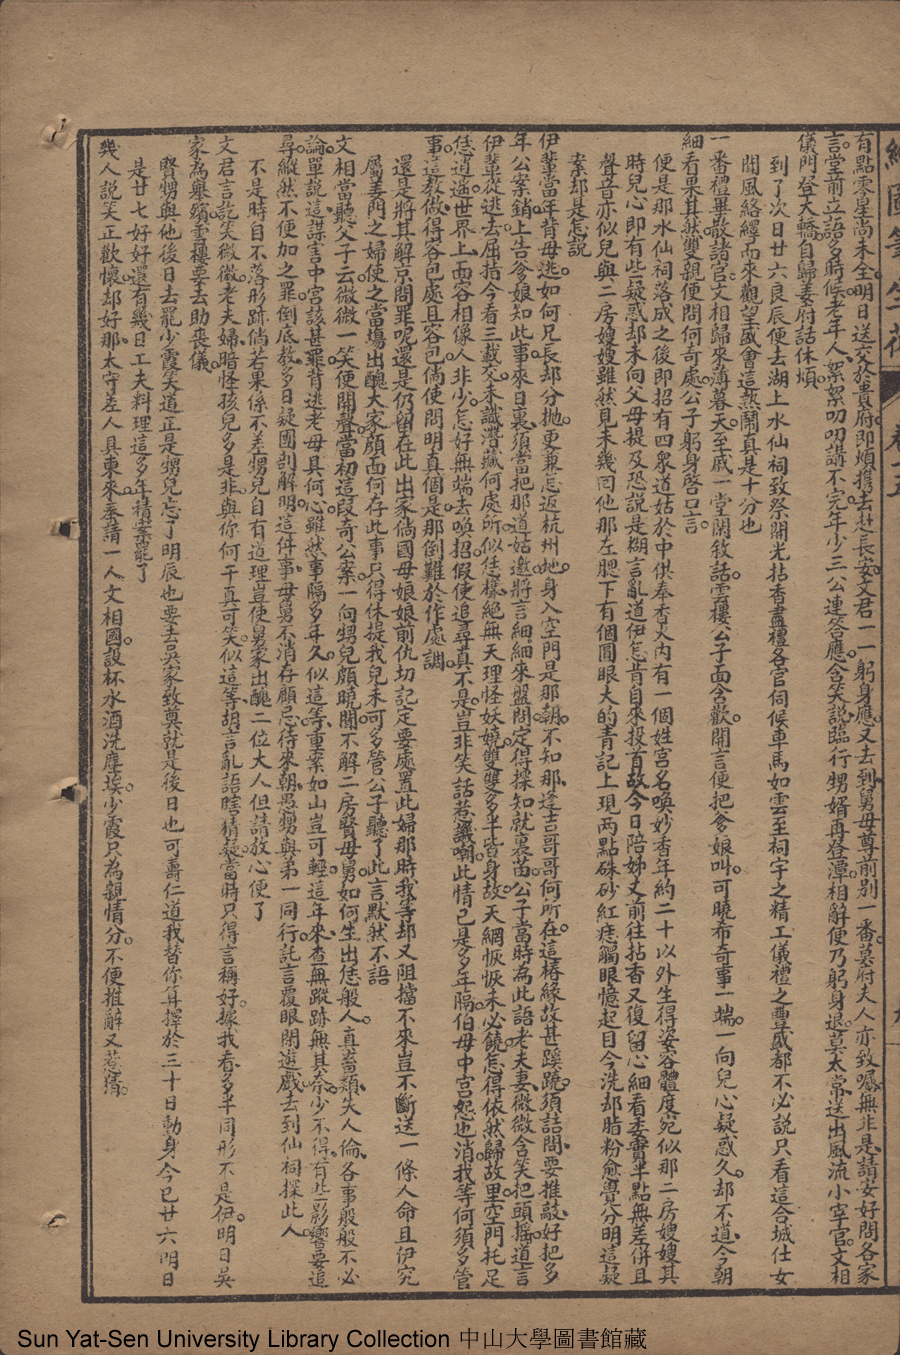 有點零星尚未全明日送交於貴府即煩攜去赴長安文君一一躬身應又去到舅母尊前別一番莫府夫人亦致囑無非是請安好問各家
言堂前立語多時候老年人絮絮叨叨講不完年少三公連答應含笑說臨行甥婿再登潭相辭便乃躬身退莫太常送出風流小宰官文相
儀門登大轎自歸姜府話休煩
到了次日廿六良辰便去湖上水仙祠致祭開光拈香盡禮各官伺候車馬如雲至祠宇之精工儀禮之豐盛都不必說只看這合城仕女
聞風絡繹而來觀望盛會這熱鬧真是十分也
一番禮畢散諸官文相歸來薄暮天至戚一堂閒敘話雲樓公子面含歡開言便把爹娘叫可曉希奇事一端一向兒心疑惑久却不道今朝
細看果其然雙親便問何奇處公子躬身啓口言
便是那水仙祠落成之後即招有四眾道姑於中供奉香火內有一個姓宮名喚妙香年約二十以外生得姿容體度宛似那二房嫂嫂其
時兒心即有些疑惑却未向父母提及恐說是糊言亂道伊怎肯自來投首故今日陪姊丈前往拈香又復留心細看委實半點無差併且
聲音亦似兒與二房嫂嫂雖然見未幾回他那左腮下有個圓眼大的青記上現兩點硃砂紅痣觸眼憶起目今洗却脂粉愈覺分明這疑
案却是怎說
伊輩當年背母逃如何兄長却分拋更兼怎返杭州地身入空門是那朝不知那逢吉哥哥何所在這樁緣故甚蹊蹺須詰問要推敲好把多
年公案銷上告爹娘知此事來日裏須當把那道姑邀將言細細來盤問定得探知就裏苗公子當時為此語老夫妻微微含笑把頭搖道言
伊輩從逃去屈指今看三載交未識潛藏何處所似恁樣絕無天理怪妖嬈雙雙多半皆身故天網恢恢未必饒怎得依然歸故里空門托足
恁逍遙世界上面容相像人非少怎好無端去喚招假使追尋真不是豈非笑話惹譏嘲此情已是多年隔伯母中宮恕也消我等何須多管
事這教做得容包處且容包倘使問明真個是那倒難於作處調
還是將其解京問罪呢還是仍留在此出家倘國母娘娘前仇切記定要處置此婦那時我等却又阻擋不來豈不斷送一條人命且伊究
屬姜門之婦使之當場出醜大家顏面何存此事只得休提我兒未可多管公子聽了此言默然不語
文相當聽父子云微微一笑便開聲當初這段奇公案一向甥兒頗曉聞不解二房賢母舅如何生出恁般人真畜類失人倫各事般般不必
論單說這謀害中宮該甚罪背逃老母具何心雖然事隔多年久似這等重案如山豈可輕這年來查無蹤跡無其奈少不得有些影響要追
尋縱然不便加之罪倒底教多日疑團剖解明這件事母舅不消存顧忌待來朝愚甥與弟一同行託言覆眼閒遊戲去到仙祠探此人
不是時自不落形跡倘若果係不差甥兒自有道理豈使舅家出醜二位大人但請放心便了
文君言訖笑微微老夫婦暗怪孩兒多是非與你何干真可笑似這等胡言亂語瞎猜疑當時只得言稱好據我看多半同形不是伊明日吳
家為舉殯雲樓要去助喪儀
賢甥與他後日去罷少霞笑道正是甥兒忘了明辰也要去吳家致奠就是後日也可壽仁道我替你耳擇於三十日動身今已廿六明日
是廿七好好還有幾日工夫料理這多年積案罷了
幾人說笑正歡懷却好那太守差人具柬來奉請一人文相國設杯水酒洗塵埃少霞只為親情分不便推辭又惹猜
Sun Yat-Sen University Library Collection 中山大學圖書館藏